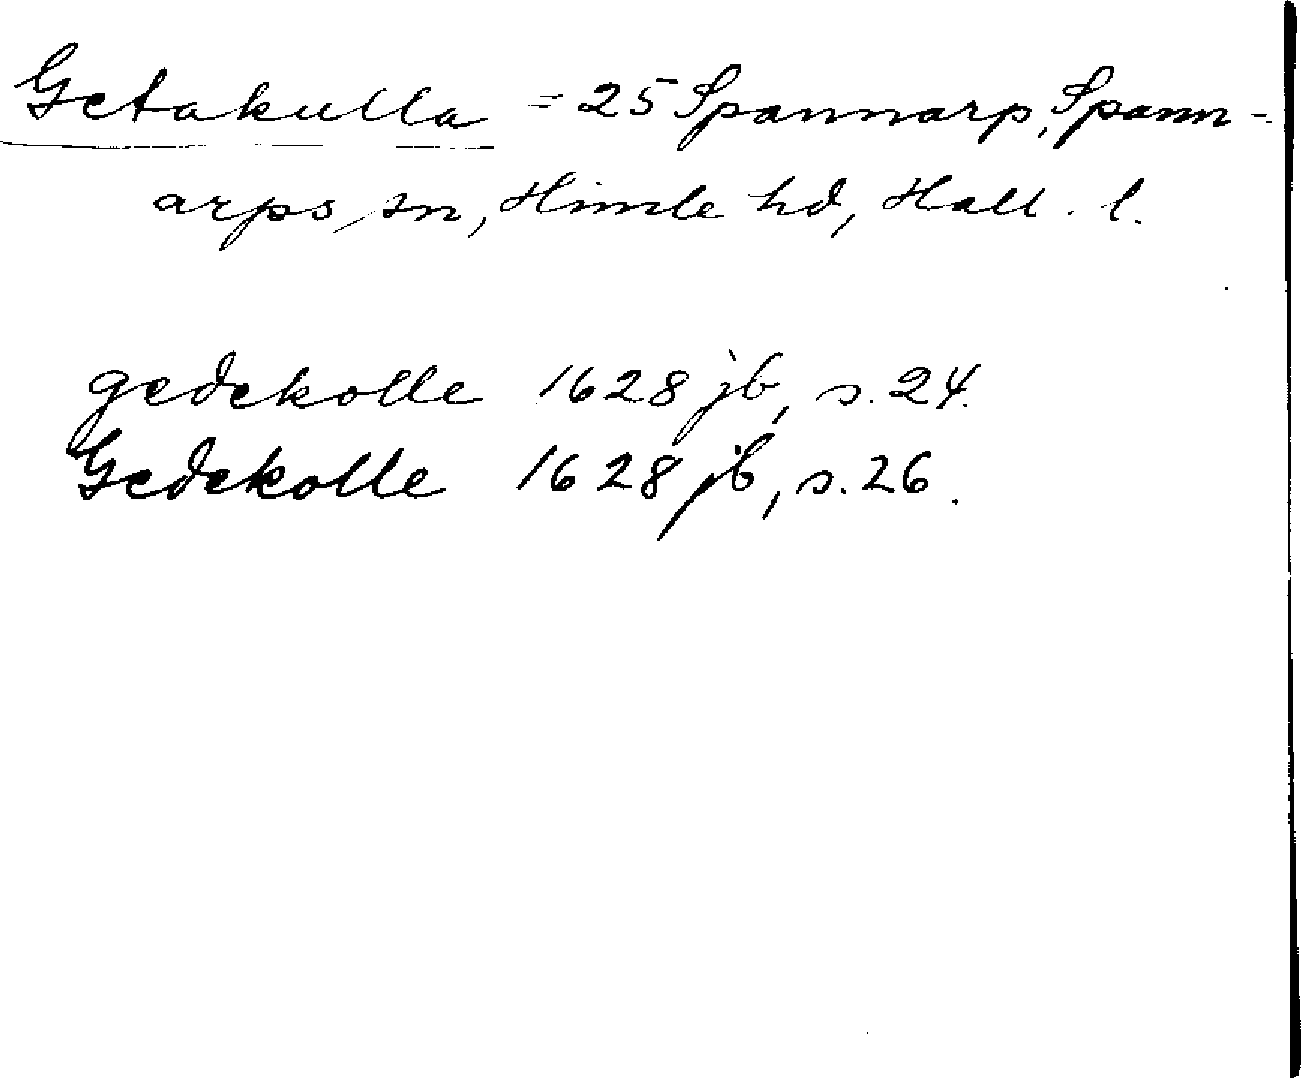 Getakulla = 25 Spannarp, Spann-
arps sn, Himle hd, Hall. l.
gedekolle 1628 jb, s. 24.
Gedekolle 1628 jb, s. 26.